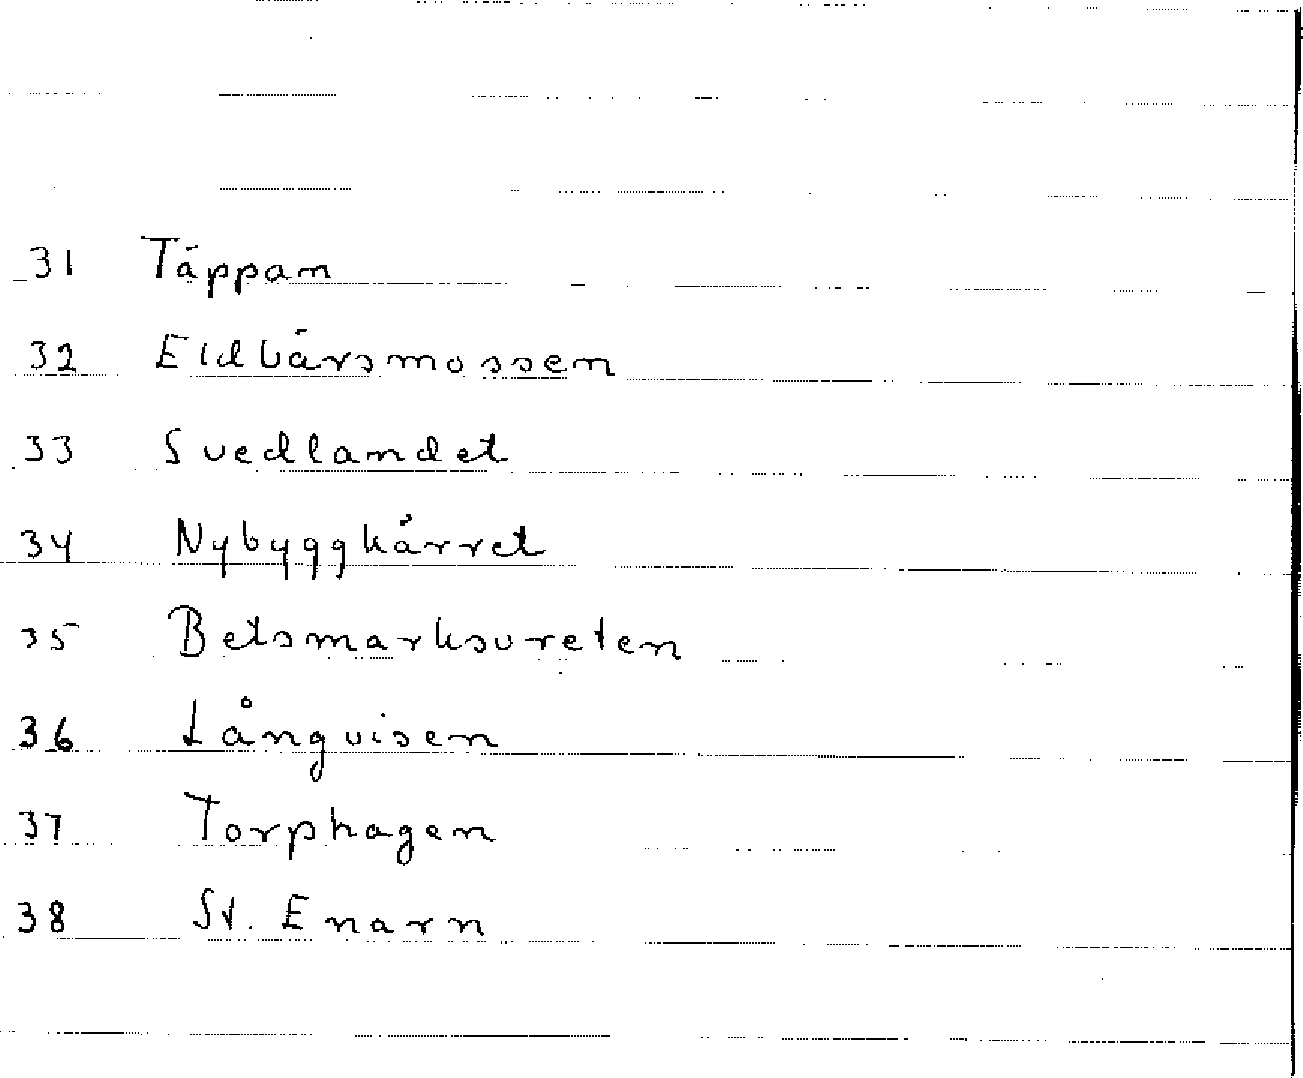 31 Täppan
32
33 Svedlandet
34 Nybyggkärret
35 Betsmarksvreten
36 Långvisen
37 Torphagen
38 St. Enarn